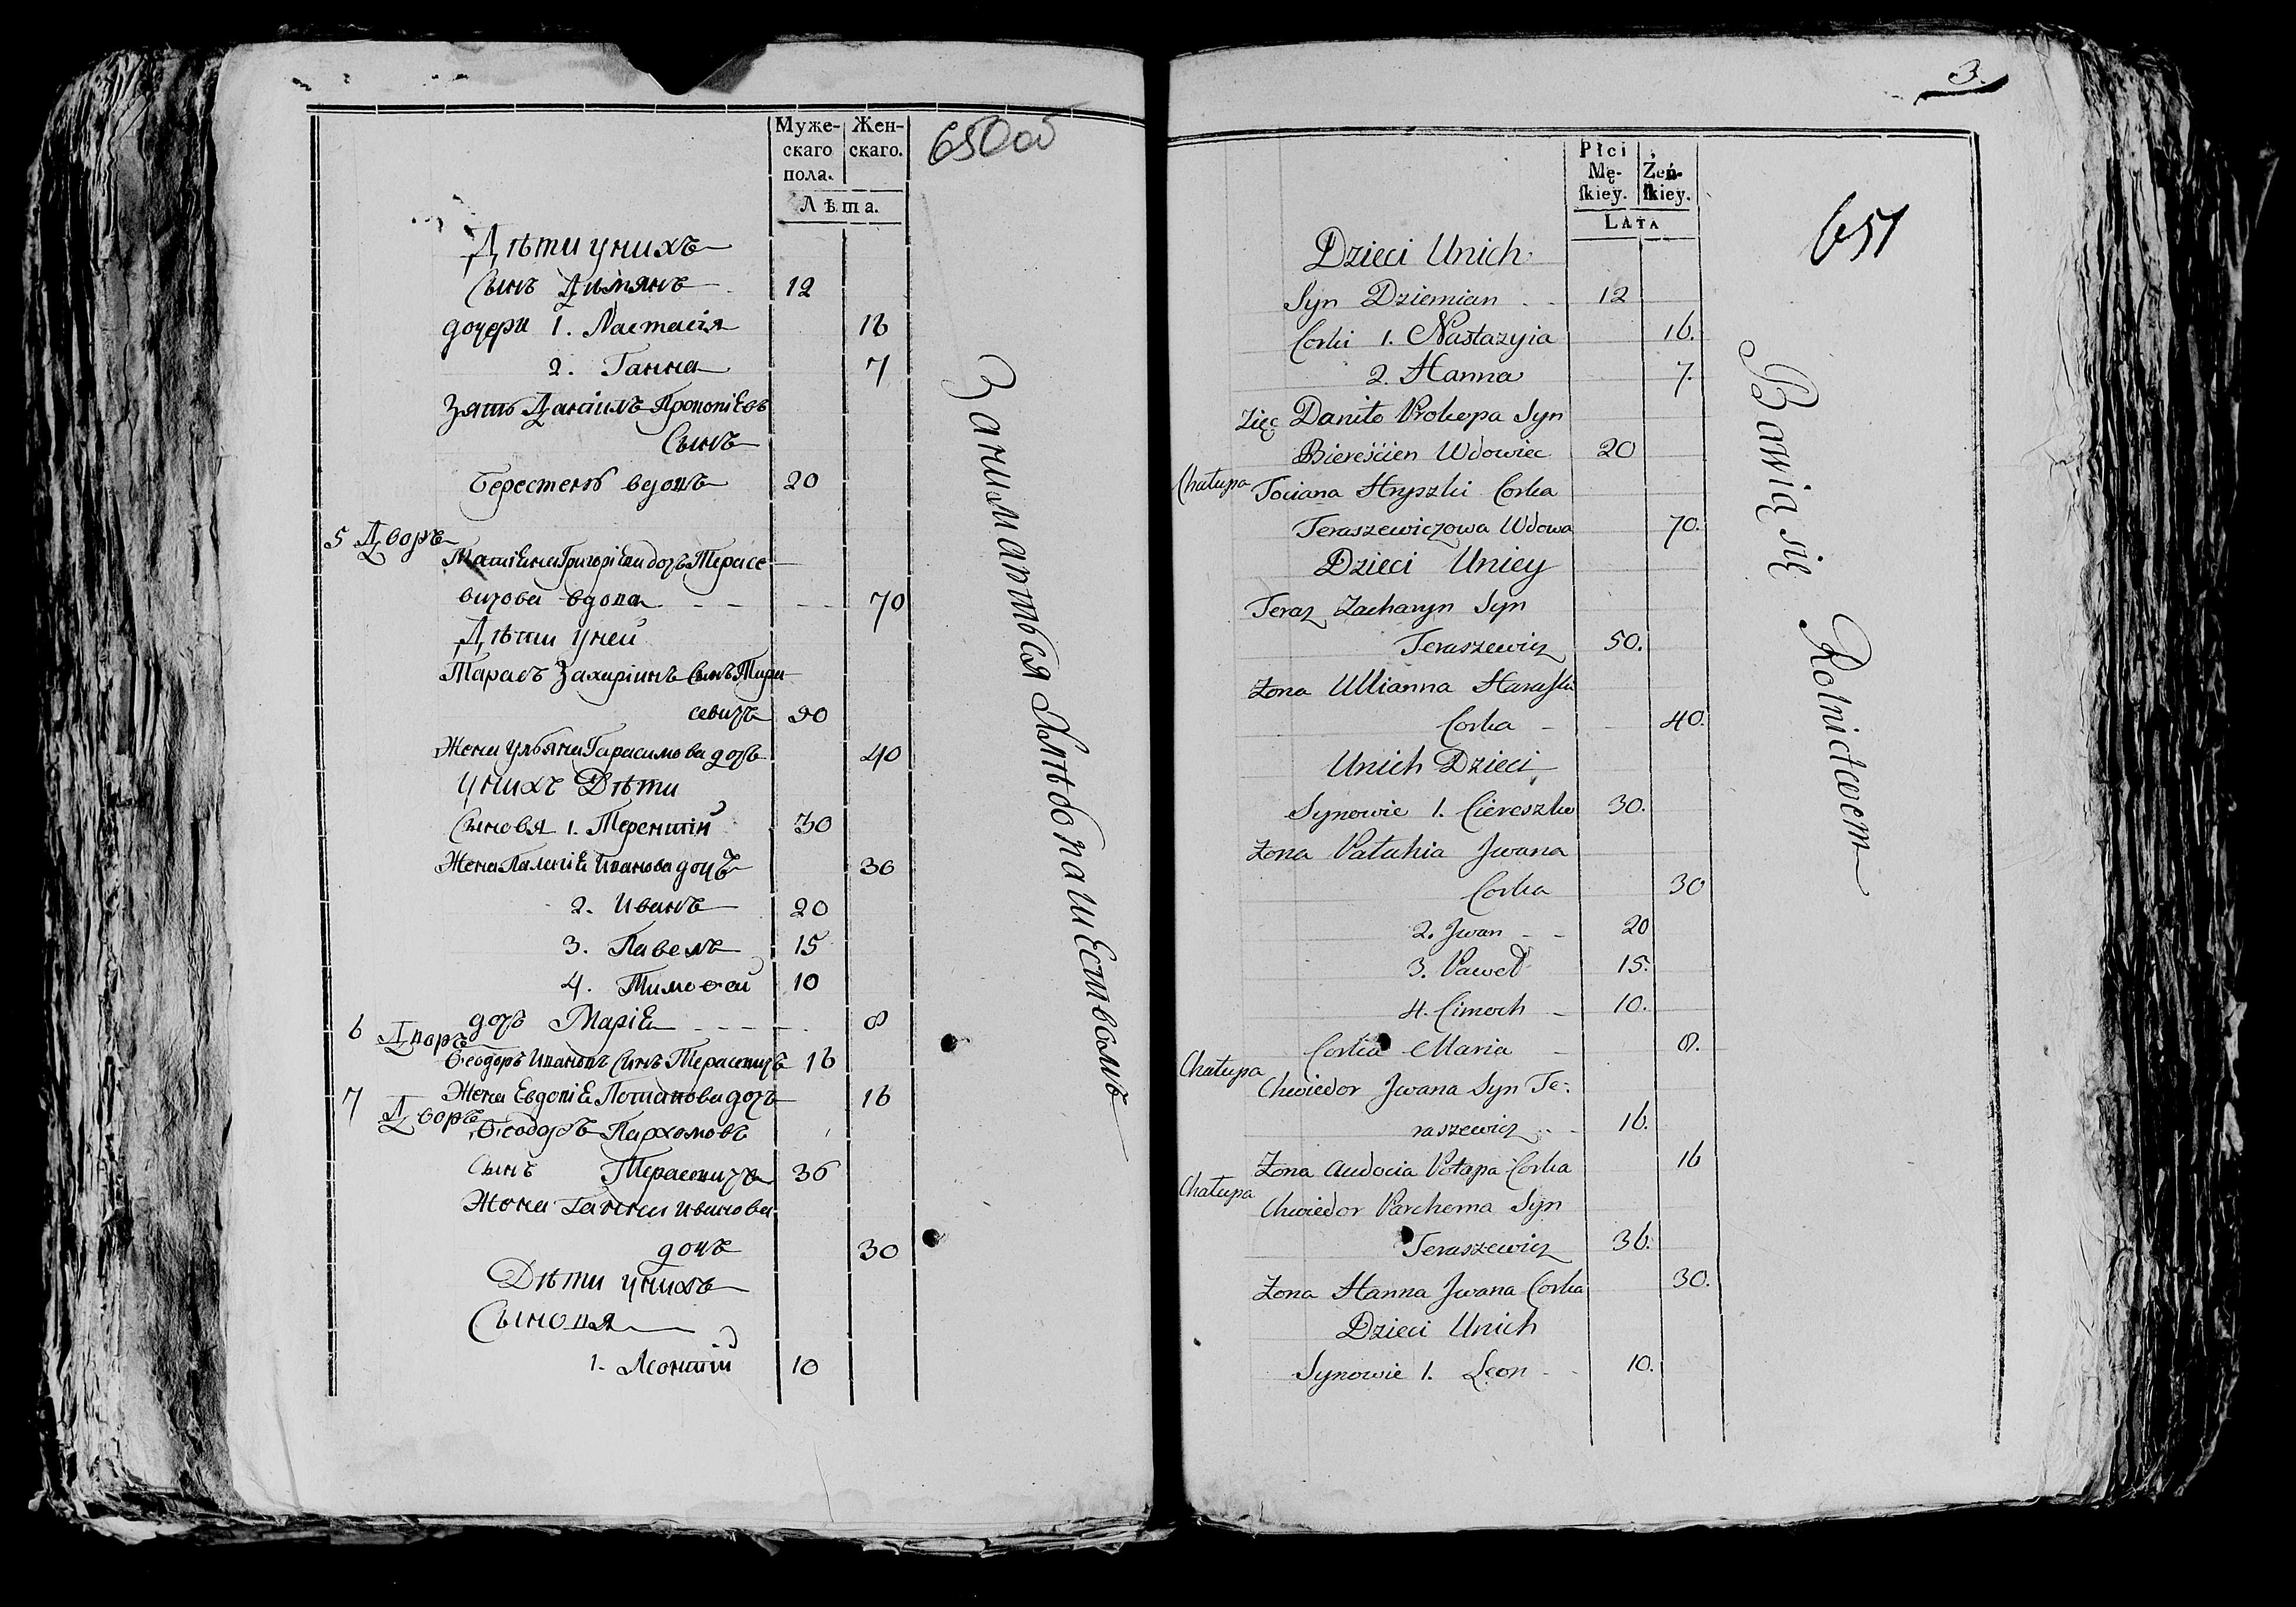 Муже- Жен-
скаго скаго.
пола.
Лѣта.
650об
Дѣти унихъ
Сынъ Димянъ 12
дочери 1. Настасія 16
2. Ганна 7
Зять Даніилъ Прокопіевъ
Сынъ
Берестень вдовъ 20
5 Дворъ
Татіяна Григоріева дочь Терасе
вичова вдова 70
Дѣти уней
Тарасъ Захаріинъ Сынъ Тара
севичъ 50
Жена Ульяна Гарасимова дочь 40
унихъ Дѣти
Сыновя 1. Терентій 30
Жена Іванова дочь 30
2. Иванъ 20
3. Павелъ 15
4. Тимоѳей 10
дочь Марія 8
6 Дворъ
Ѳеодоръ Ивановъ Сынъ Терасевичъ 16
Жена Евдокія Потапова дочь 16
7 Дворъ
Ѳеодоръ Пархомовъ
Сынъ Терасевичъ 36
Жена Ганна Иванова
дочь 30
Дѣти унихъ
Сыновя
1. Леонтій 10
Заниматься Хлѣбопашествомъ
3.
Płci
Mę- Żeń-
ſkiey. ſkiey.
LATA
651
Dzieci Unich
Syn Dziemian 12
Corki 1. Nastazyia 16.
2. Hanna 7.
Zięc Daniło Prokopa Syn
Biereścien Wdowiec 20
Chałupa Tociana Hryszki Corka
Teraszewiczowa Wdowa 70.
Dzieci Uniey
Teraz Zacharyn Syn
Teraszewicz 50.
Zona Ullianna Haraſki
Corka 40.
Unich Dzieci
Synowie 1. Ciereszko 30.
Zona Pałuhia Jwana
Corka 30
2. Jwan 20
3. Paweł 15.
4. Cimoch 10.
Corka Maria 8.
Chałupa
Chwiedor Jwana Syn Te-
raszewicz 16.
Zona Audocia Potapa Corka 16
Chałupa
Chwiedor Parchema Syn
Teraszewicz 36.
Zona Hanna Jwana Corka 30.
Dzieci Unich
Synowie 1. Leon 10.
Bawią się Rolnictwem